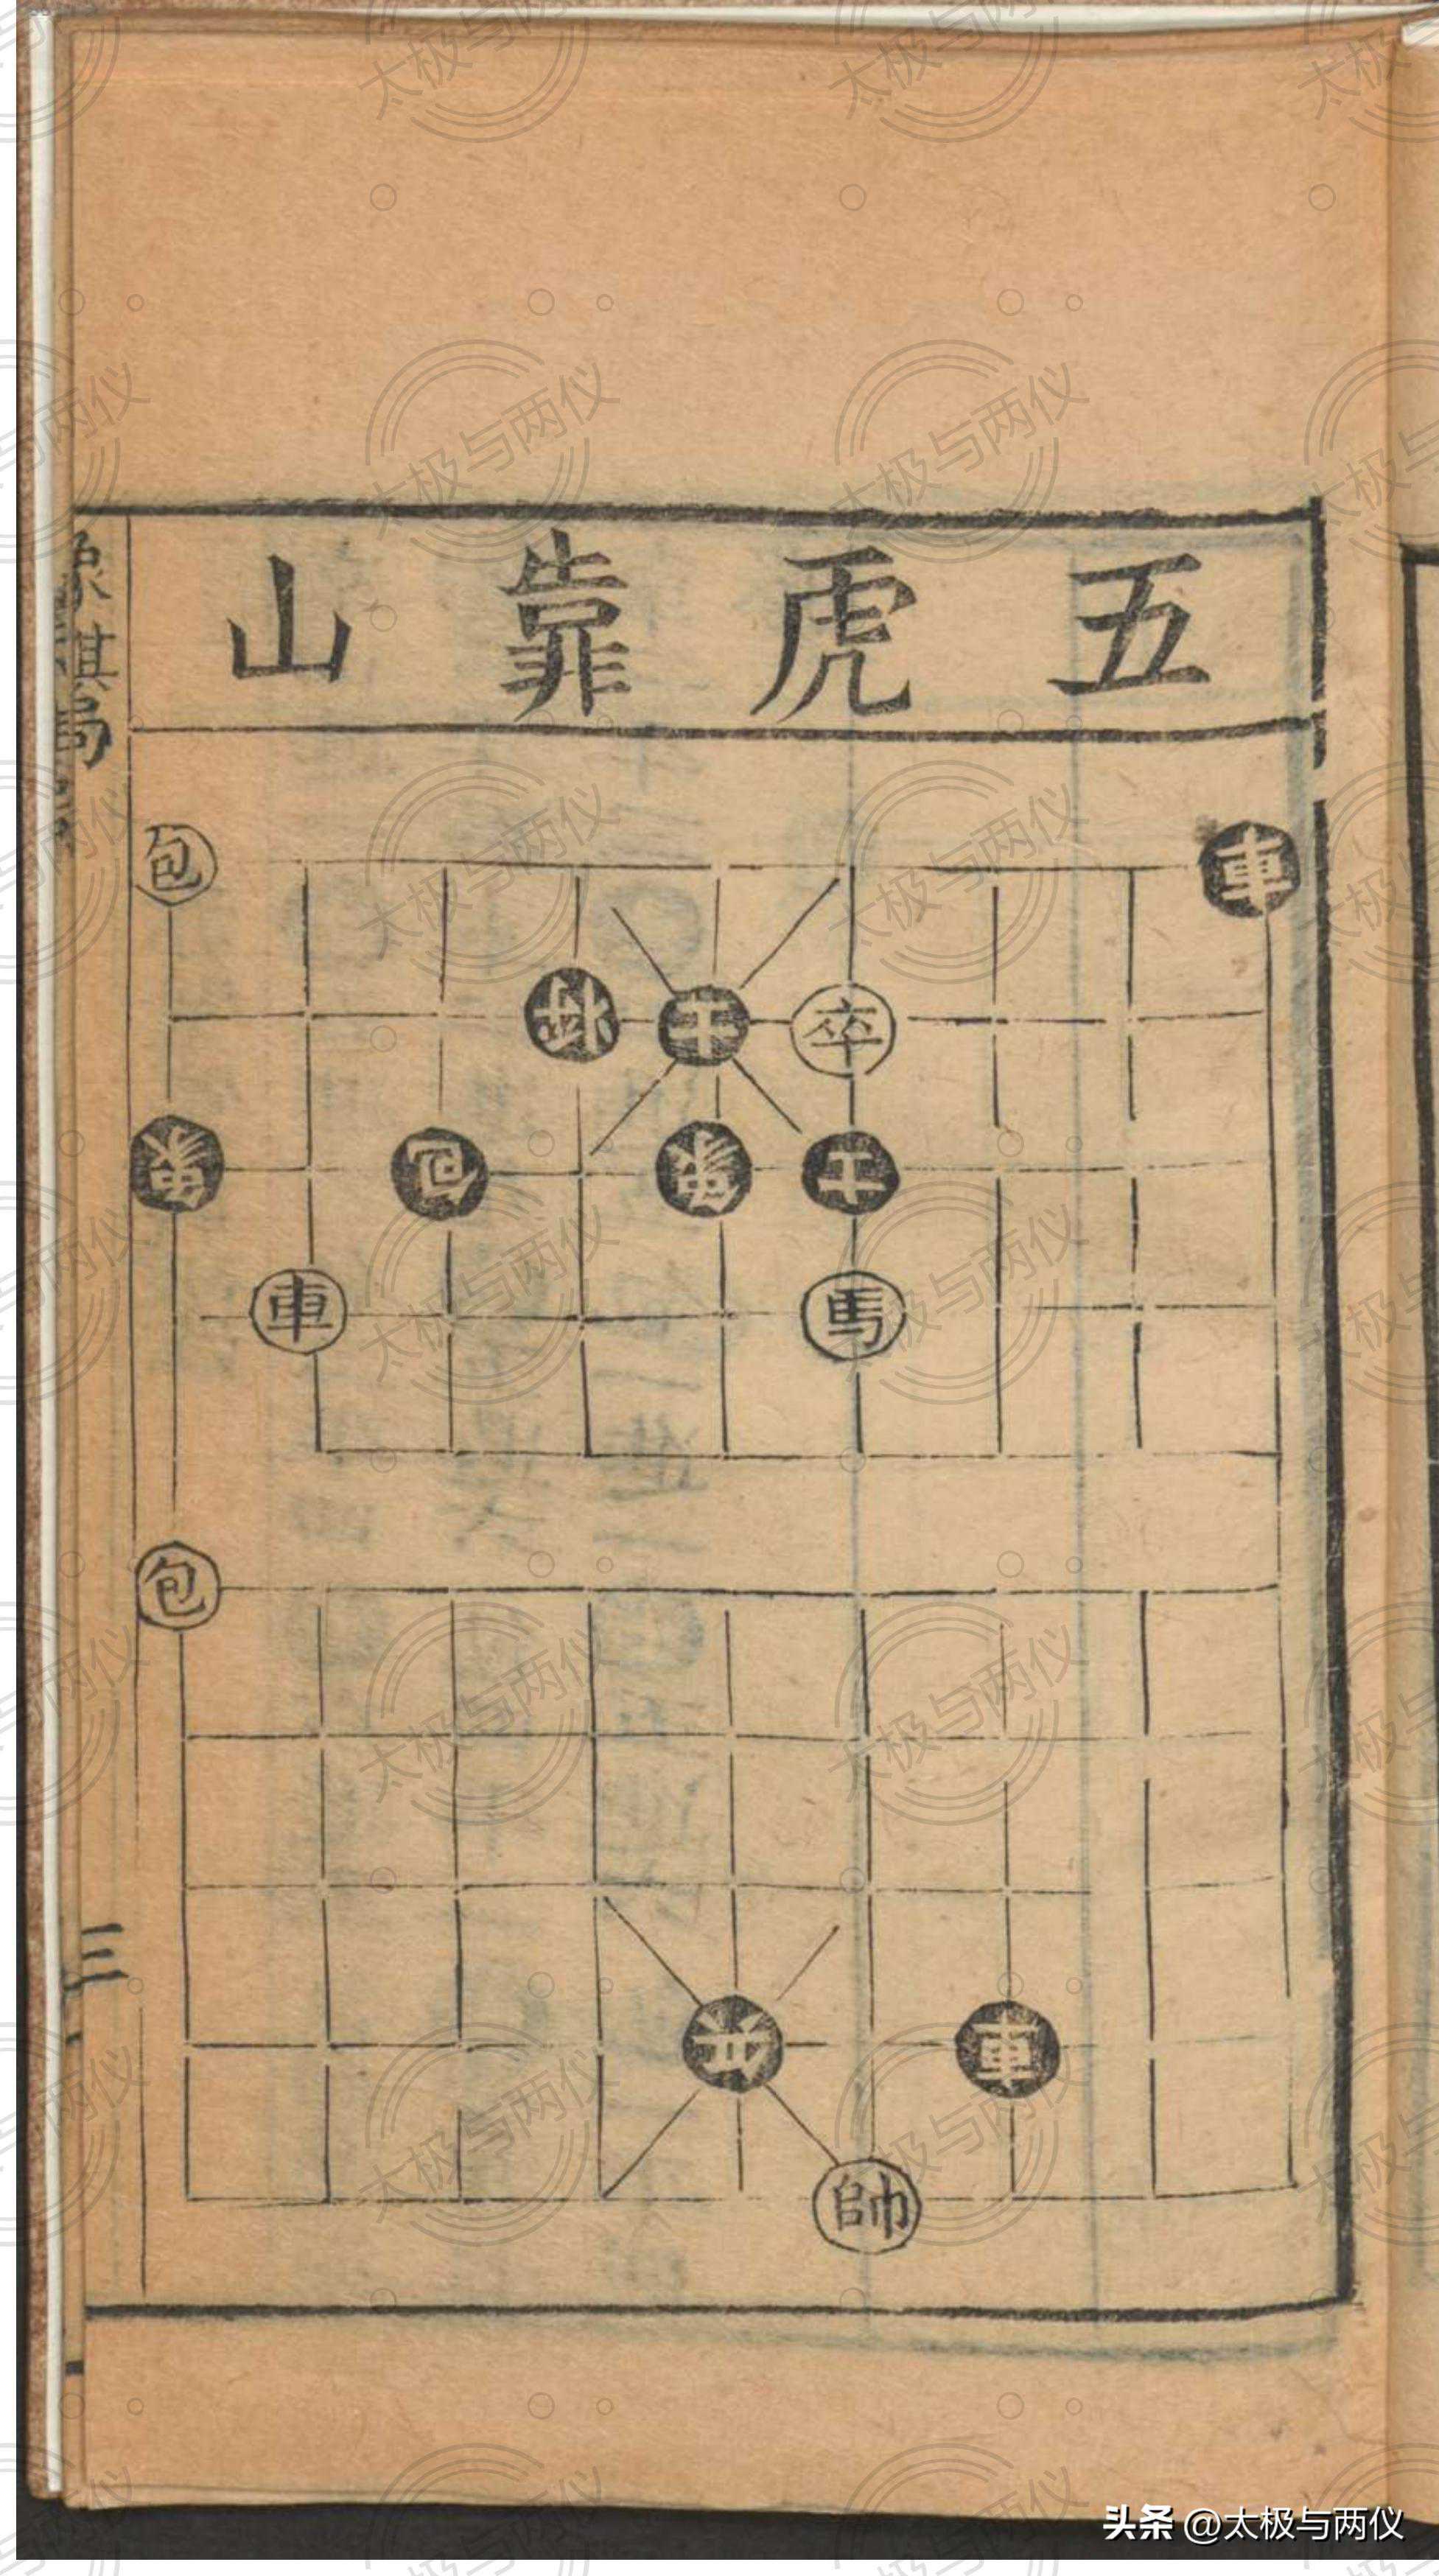 五虎靠山
包 車
將 士 卒
象 包 象 士
車 馬
包
卒 車
帥
三
太极与两仪
头条 @太极与两仪